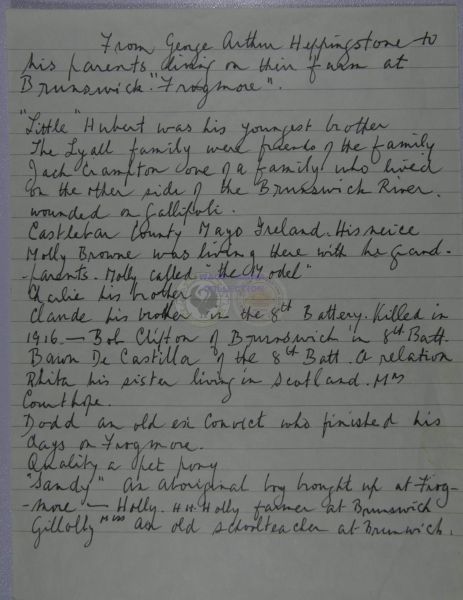 From George Arthur Heppingstone to
his parents living on their farm at
Brunswick. "Frogmore".
"Little" Hubert was his youngest brother
The Lyall family were friends of the family
Jack Crampton one of a family who lived
on the other side of the Brunswick River.
wounded on Gallipoli.
Castlebar County Mayo Ireland. His neice
Molly Browne was living there with her grand-
-parents. Molly called "the Model"
Charlie his brother
Claude his brother in the 8th Battery. Killed in
1916. — Bob Clifton of Brunswick in 8th Batt.
Bawn De Castilla of the 8th Batt. a relation
Rhita his sister living in Scotland. Mrs
Courthope.
Dodd an old ex Convict who finished his
days on Frogmore.
Quality a pet pony
"Sandy" an aboriginal boy brought up at Frog-
-more" — Holly. H.H. Holly farmer at Brunswick
Gillolly Miss an old schoolteacher at Brunwich.